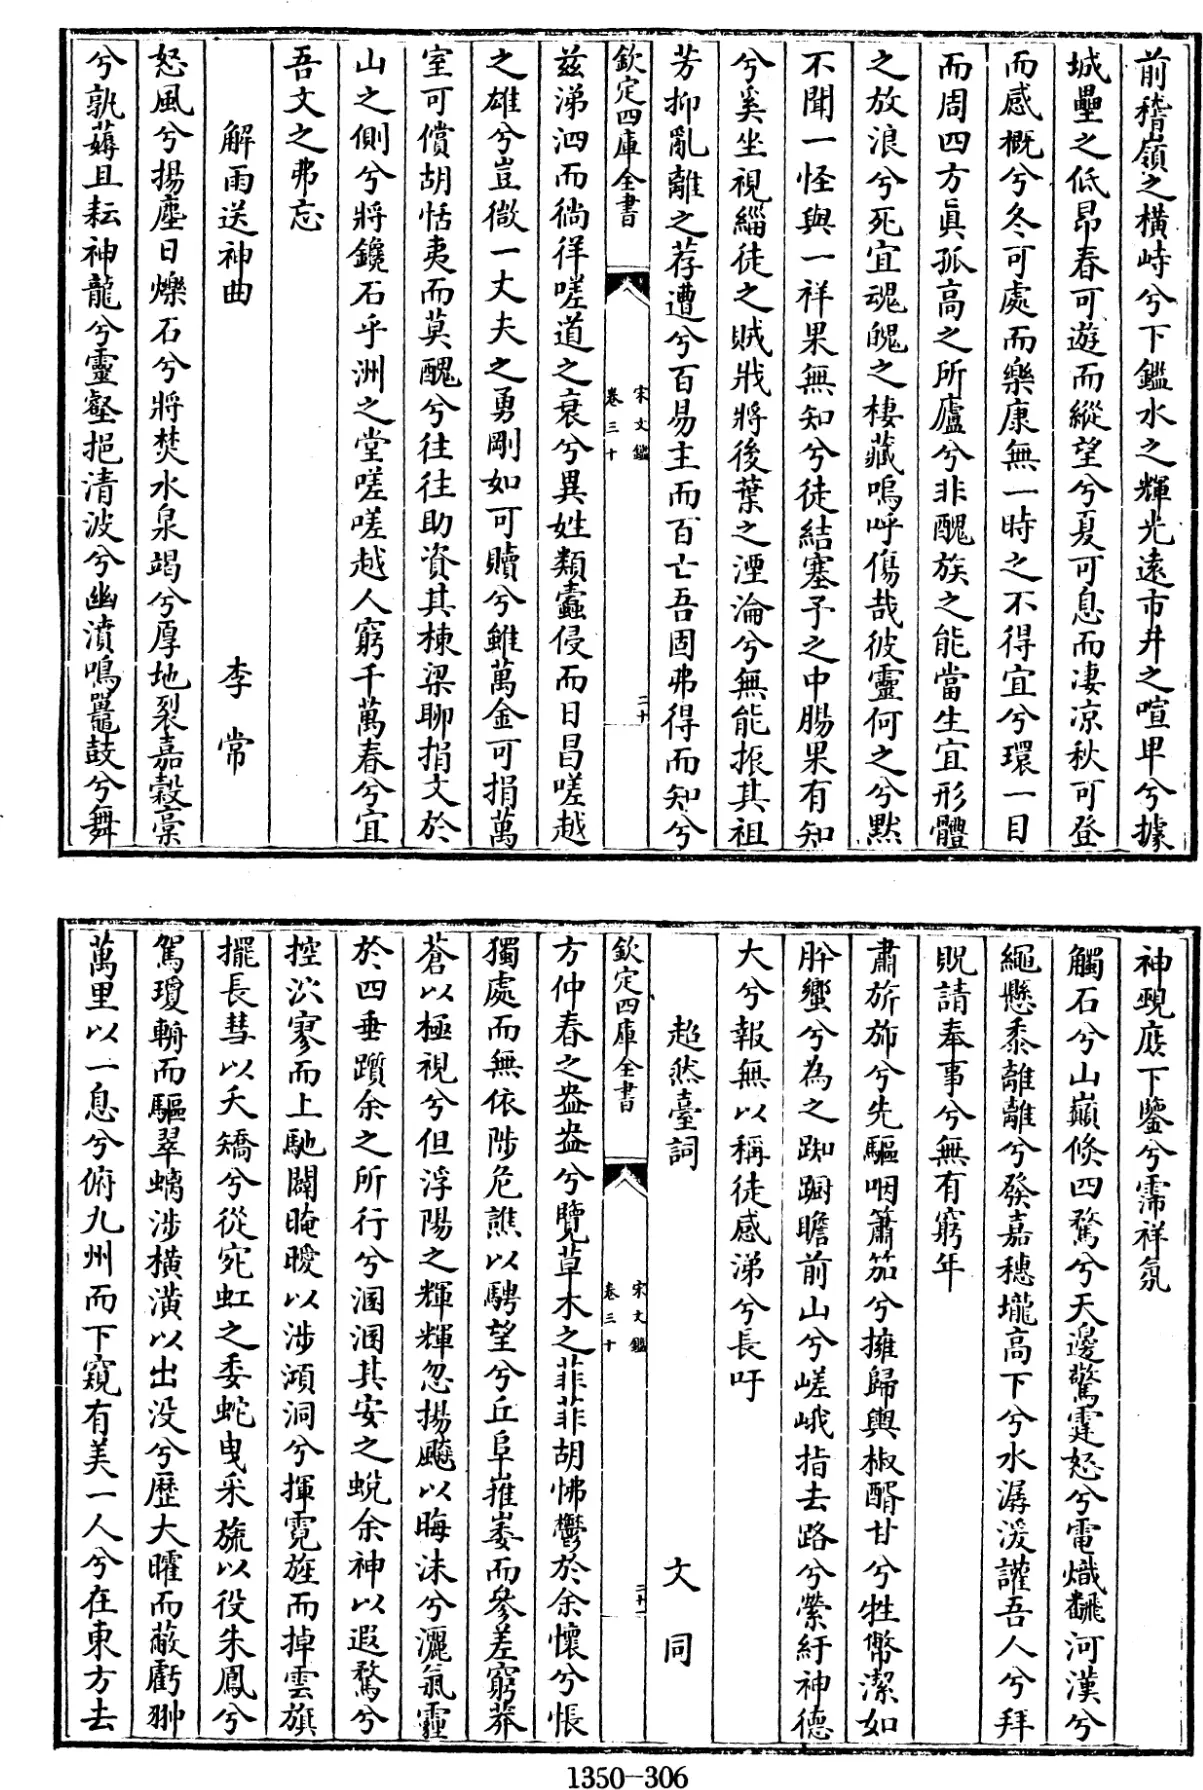 前稽嶺之橫峙兮下鑑水之輝光遠市井之喧卑兮據
城壘之低昂春可遊而縱望兮夏可息而凄凉秋可登
而感概兮冬可處而樂康無一時之不得宜兮環一目
而周四方眞孤高之所廬兮非醜族之能當生宜形體
之放浪兮死宜魂魄之棲藏嗚呼傷哉彼靈何之兮黙
不聞一怪與一祥果無知兮徒結塞予之中腸果有知
兮奚坐視緇徒之賊戕將後葉之湮淪兮無能振其祖
芳抑亂離之荐遭兮百易主而百亡吾固弗得而知兮
欽定四庫全書
宋文鑑
卷三十
二十
兹涕泗而徜徉嗟道之衰兮異姓類蠧侵而日昌嗟越
之雄兮豈微一丈夫之勇剛如可贖兮雖萬金可捐萬
室可償胡恬夷而莫醜兮往往助資其棟梁聊捐文於
山之側兮將鑱石乎洲之堂嗟嗟越人窮千萬春兮宜
吾文之弗忘
解雨送神曲 李常
怒風兮揚塵日爍石兮將焚水泉竭兮厚地裂嘉穀槀
兮孰薅且耘神龍兮靈壑挹清波兮幽濆鳴鼉鼓兮舞
神覡庶下鑒兮霈祥氛
觸石兮山巔倐四騖兮天邊驚霆怒兮電熾飜河漢兮
繩懸黍離離兮發嘉穗壠高下兮水潺湲讙吾人兮拜
貺請奉事兮無有窮年
肅旂斾兮先驅咽簫笳兮擁歸輿椒醑甘兮牲幣潔如
肸蠁兮為之踟蹰瞻前山兮嵯峨指去路兮縈紆神德
大兮報無以稱徒感涕兮長吁
超然臺詞 文同
欽定四庫全書
宋文鑑
卷三十
二十一
方仲春之盎盎兮覽草木之菲菲胡怫鬱於余懷兮悵
獨處而無依陟危譙以騁望兮丘阜摧崣而參差窮莽
蒼以極視兮但浮陽之輝輝忽揚飈以晦沬兮灑氣霾
於四垂躓余之所行兮溷溷其安之蛻余神以遐騖兮
控泬寥而上馳闢晻曖以涉澒洞兮揮霓旌而掉雲旗
擺長彗以夭矯兮從宛虹之委蛇曳采旒以役朱鳳兮
駕瓊輈而驅翠螭涉橫潢以出没兮歷大曜而蔽虧翀
萬里以一息兮俯九州而下窺有美一人兮在東方去
1350-306